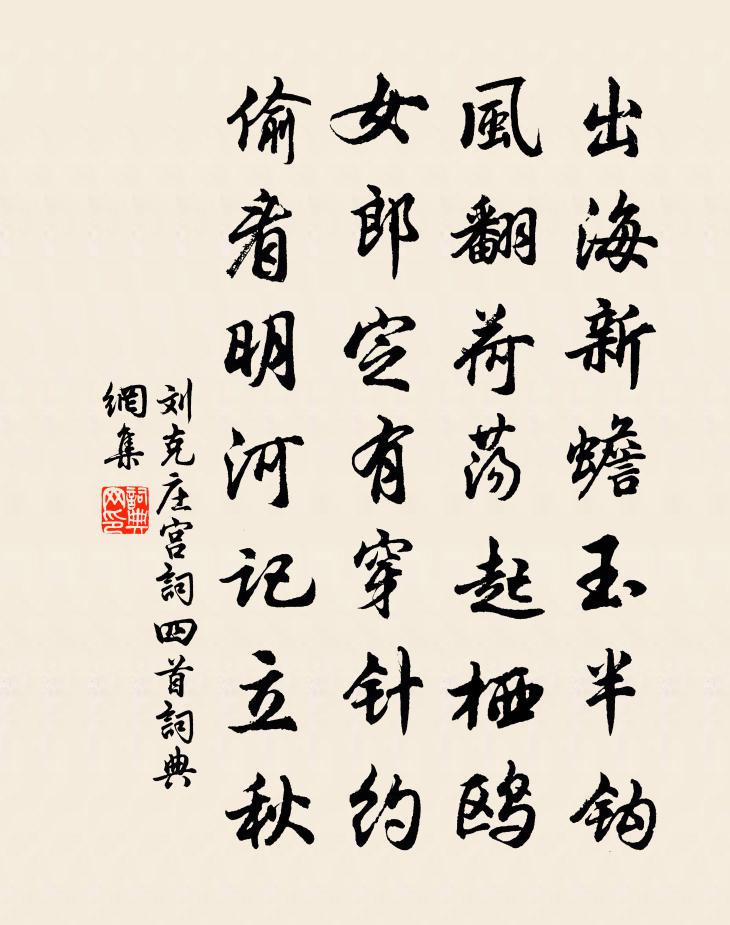 出海新蟾玉半钩
風翻荷荡起栖鸥
女郎定有穿针约
偷看明河记立秋
刘克庄宫詞四首詞典
網集
詞典
网印